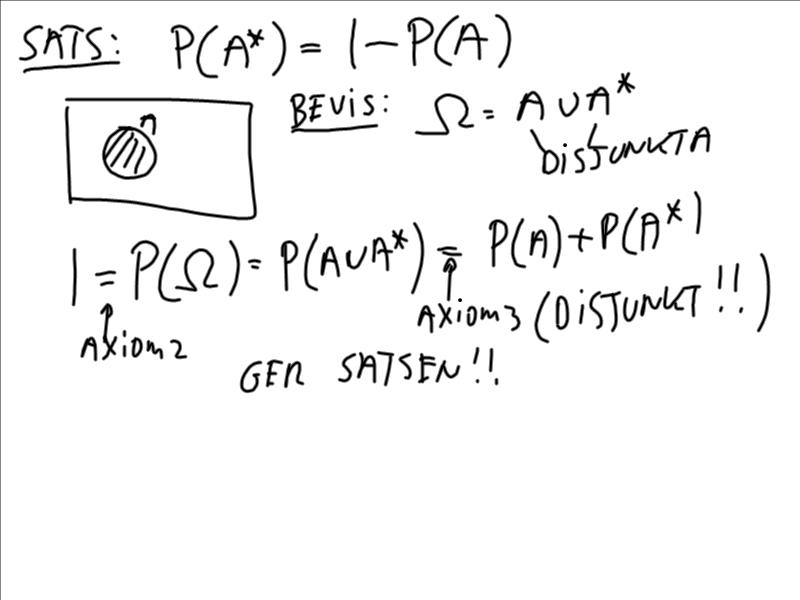 SATS: P(A*) = 1 - P(A)
A
BEVIS: Ω = A ∪ A*
DISJUNKTA
1 = P(Ω) = P(A∪A*) = P(A) + P(A*)
AXIOM 2
AXIOM 3 (DISJUNKT!!)
GER SATSEN!!